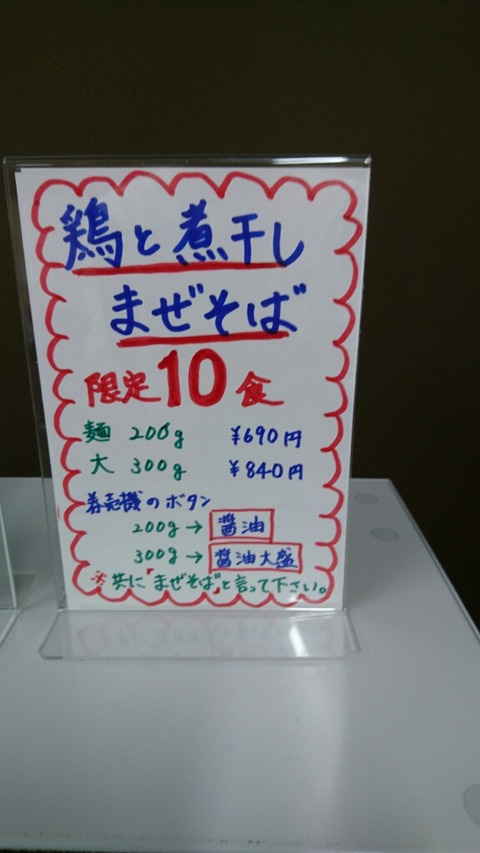 鶏と煮干し
まぜそば
限定10食
麺 200g ¥690円
大 300g ¥840円
券売機のボタン
200g→醤油
300g→醤油大盛
※共に「まぜそば」と言って下さい。